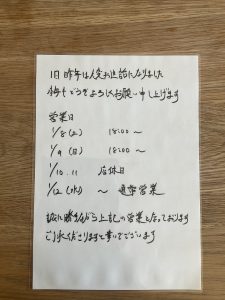 旧昨年は大変お世話になりました
今年もどうぞよろしくお願い申し上げます
営業日
1/8(土) 18:00〜
1/9(日) 18:00〜
1/10.11 店休日
1/12(水) 〜 通常営業
誠に勝手ながら上記の営業となっております
ご了承くださりますと幸いでございます